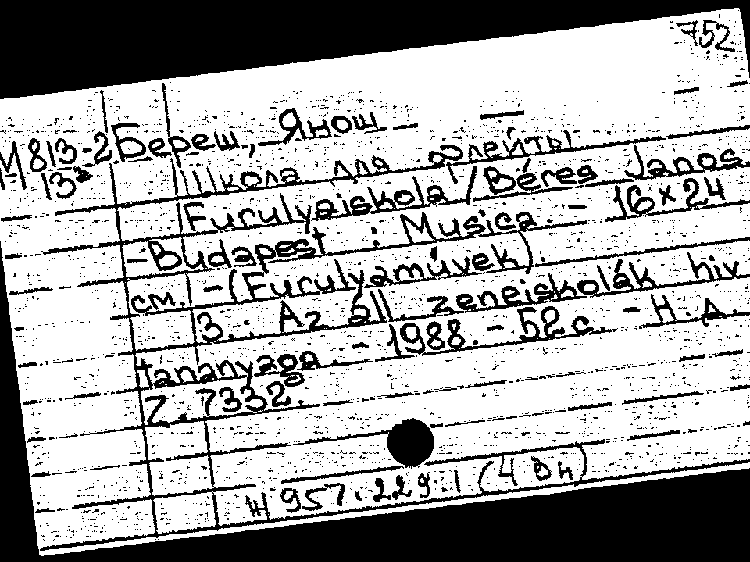 752
М813-2 Береш, Янош —
13²
Школа для флейты
Furulyaiskola / Béres Janos.
-Budapest : Musica. - 16×24
см. - (Furulyaművek).
3.: Az áll. zeneiskolák hiv.
tananyaga. - 1988. - 52 с. - Н. д.
Z. 7332.
Н 957.229.1 (4 Вн)